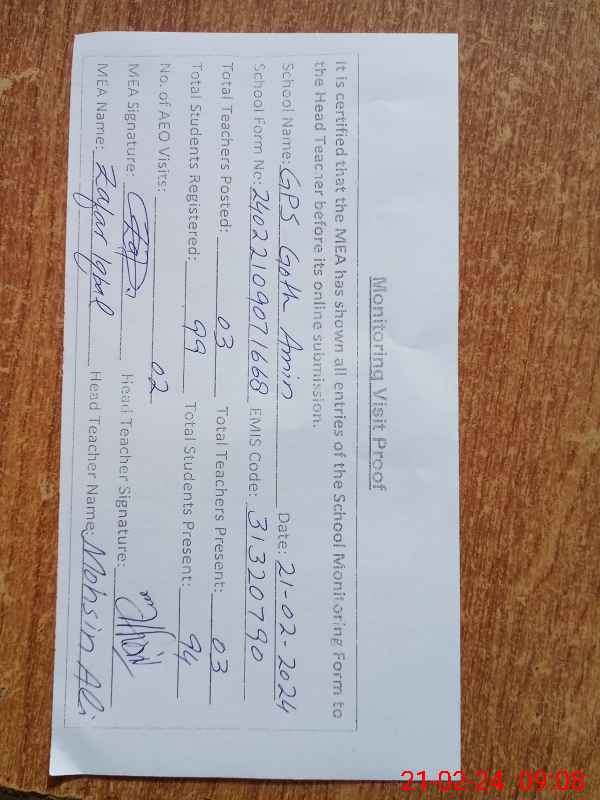 Monitoring Visit Proof
It is certified that the MEA has shown all entries of the School Monitoring Form to
the Head Teacher before its online submission.
School Name: GPS Goth Amin Date: 21-02-2024
School Form No: 24022109071668 EMIS Code: 31320790
Total Teachers Posted: 03 Total Teachers Present: 03
Total Students Registered: 99 Total Students Present: 94
No. of AEO Visits: 02
MEA Signature: Head Teacher Signature:
MEA Name: Zafar Iqbal Head Teacher Name: Mohsin Ali
21-02-24 09:08